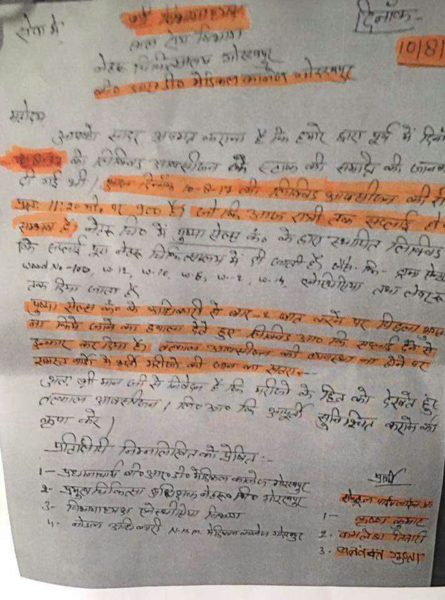 सेवा में, दिनाँक-
बाल रोग विभाग 10/8/
नेहरू चिकित्सालय गोरखपुर
बी० आर० डी० मेडिकल कालेज गोरखपुर
महोदय
आपको सादर अवगत कराना है कि हमारे द्वारा पूर्व में
को लिक्विड आक्सीजन के स्टाक की समाप्ति की
दी गई थी। आज दिनाँक 10-8-17 को लिक्विड आक्सीजन की
11:20 900 है। जो कि आज रात्री तक सप्लाई हो
सम्भव है। नेहरू चि० में पुष्पा सेल्स कं० के द्वारा स्थापित लिक्विड
कि सप्लाई पूरा नेहरू चिकित्सालय में दी जाती है। जैसे कि-
ward No-100, w-12, w-10, w-8, w-2, w-14, एनेस्थिसिया तथा लेबर
तक दिया जाता है
पुष्पा सेल्स कं० के अधिकारी से बार-२ बात करने पर पिछला
ना किये जाने का हवाला देते हुए लिक्विड आ० कि सप्लाई देने से
इन्कार कर दिया है। तत्काल आक्सीजन की व्यवस्था ना होने पर
समस्त वार्डो में भर्ती मरीजो की जान का खतरा
अतः श्री मान जी से निवेदन है कि मरीजो के हित को देखते हुए
तत्काल आक्सीजन / लि० आ० कि आपूर्ती सुनिश्चित कराने का
कृपा करें।
प्रतिलिपी निम्नलिखित को प्रेषित:-
1- प्रधानाचार्य बी० आर० डी० मेडिकल कालेज गोरखपुर
2- प्रमुख चिकित्सा अधिक्षक नेहरू चि० गोरखपुर
3- विभागाध्यक्ष एनेस्थिसिया विभाग
4. नोडल अधिकारी N.H.M. मेडिकल कालेज गोरखपुर
प्रार्थी
1- कृष्णा कुमार
2. कमलेश तिवारी
3. बलवन्त गुप्ता